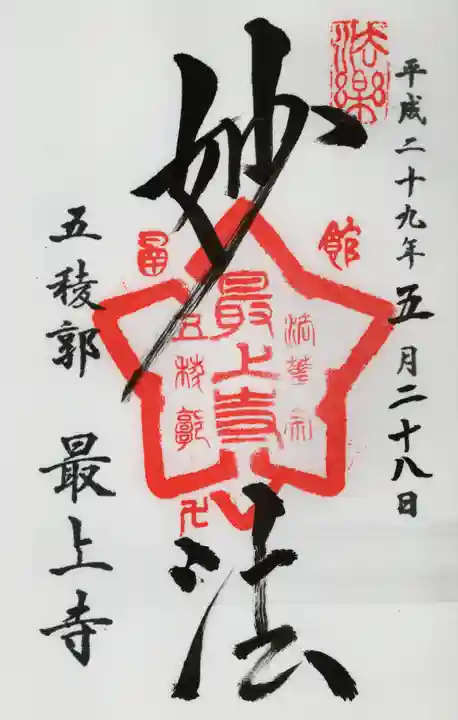 平成二十九年五月二十八日
法樂
妙法
館
函
法華宗
最上寺
五稜郭
五稜郭 最上寺